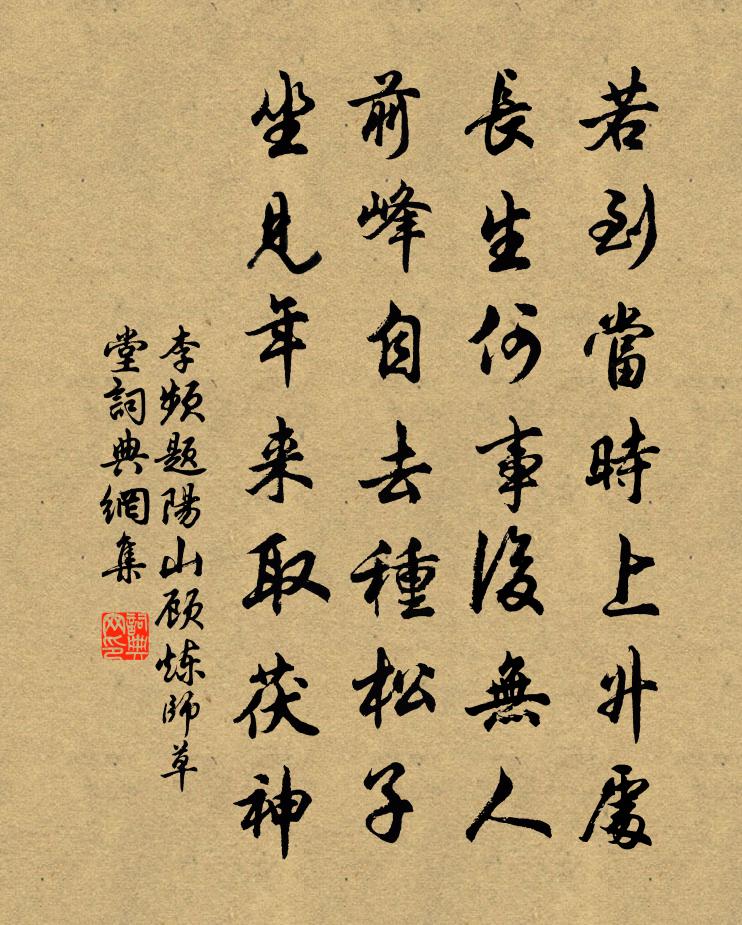 若到當時上升處
長生何事後無人
前峰自去種松子
坐見年来取茯神
李頻題陽山顧煉師草
堂詞典網集
詞典
网印